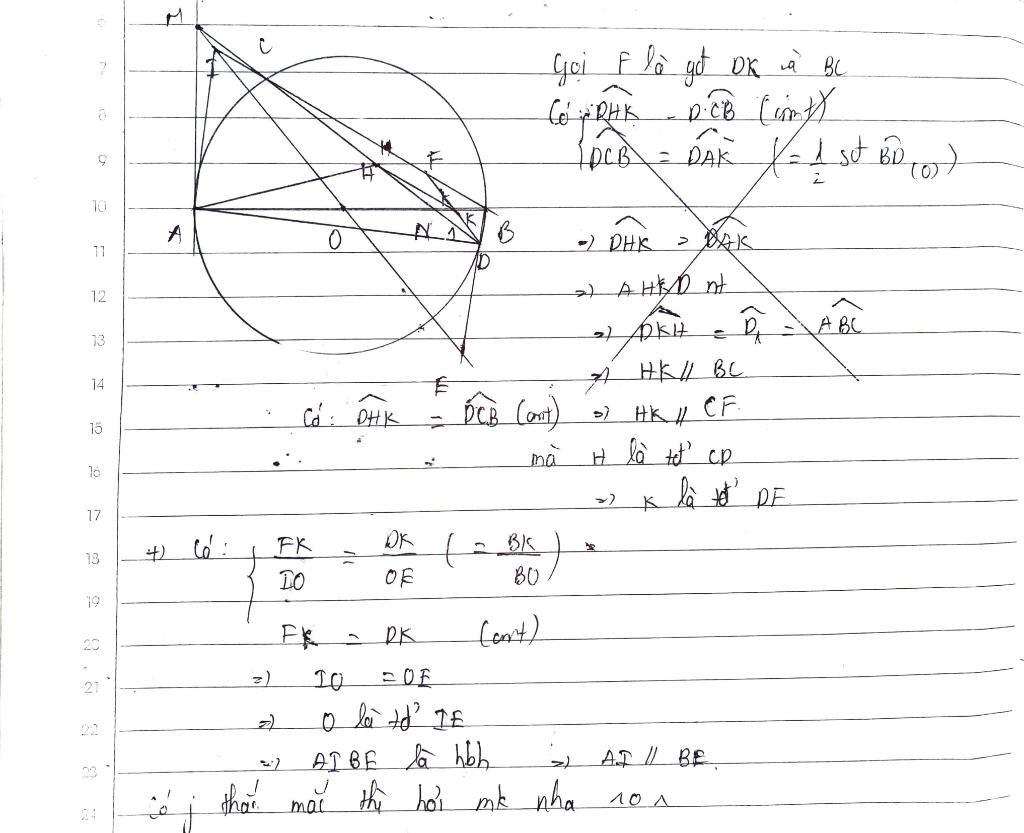 M
C
I
H
F
K
A
O
N 1
B
D
E
Gọi F là gđ DK và BC
Có: DHK = DCB (cmt)
DCB = DAK (= 1/2 sđ BD (O))
=> DHK = DAK
=> AHKD nt
=> DKH = D1 = ABC
=> HK // BC
Có: DHK = DCB (cmt) => HK // CF
mà H là tđ' CD
=> K là tđ' DF
+) Có: { FK/IO = DK/OE ( = BK/BO )
FK = DK (cmt)
=> IO = OE
=> O là tđ' IE
=> AIBE là hbh => AI // BE.
Có j thắc mắc thì hỏi mk nha
6
7
8
9
10
11
12
13
14
15
16
17
18
19
20
21
22
23
24